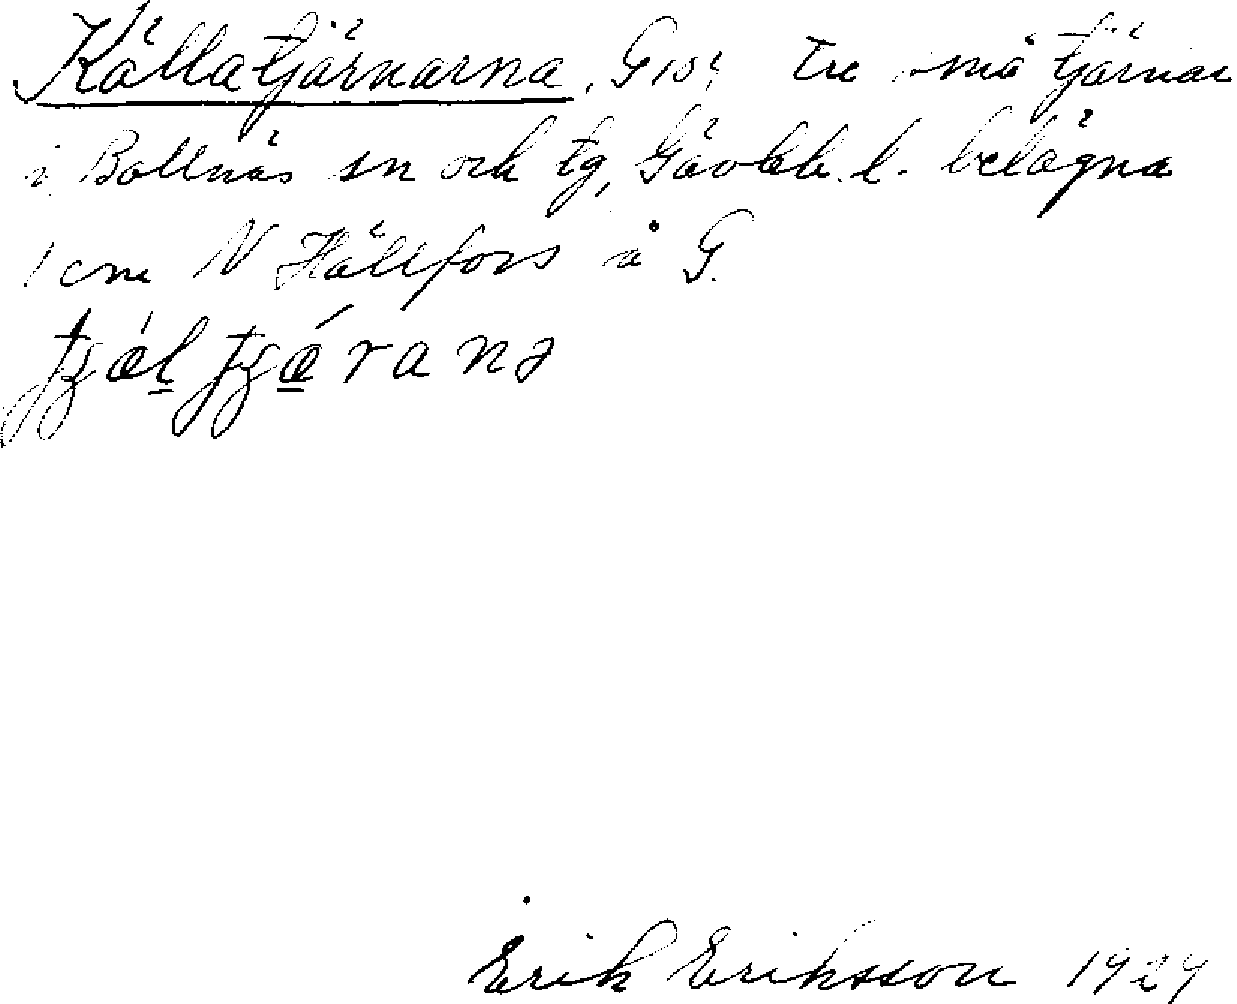 Källatjärnarna, G 10; Tre små tjärnar
i Bollnäs sn och tg, Gävleb. l. belägna
1 cm N Hällfors å G.
Erik Eriksson 1929